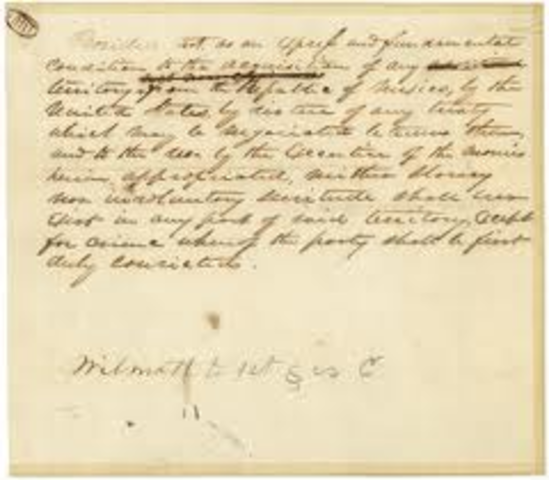 Provided, That as an express and fundamental
condition to the acquisition of any
territory from the Republic of Mexico, by the
United States, by virtue of any treaty
which may be negotiated between them,
and to the use by the Executive of the moneys
herein appropriated, neither slavery
nor involuntary servitude shall ever
exist in any part of said territory, except
for crime whereof the party shall be first
duly convicted.
Wilmott